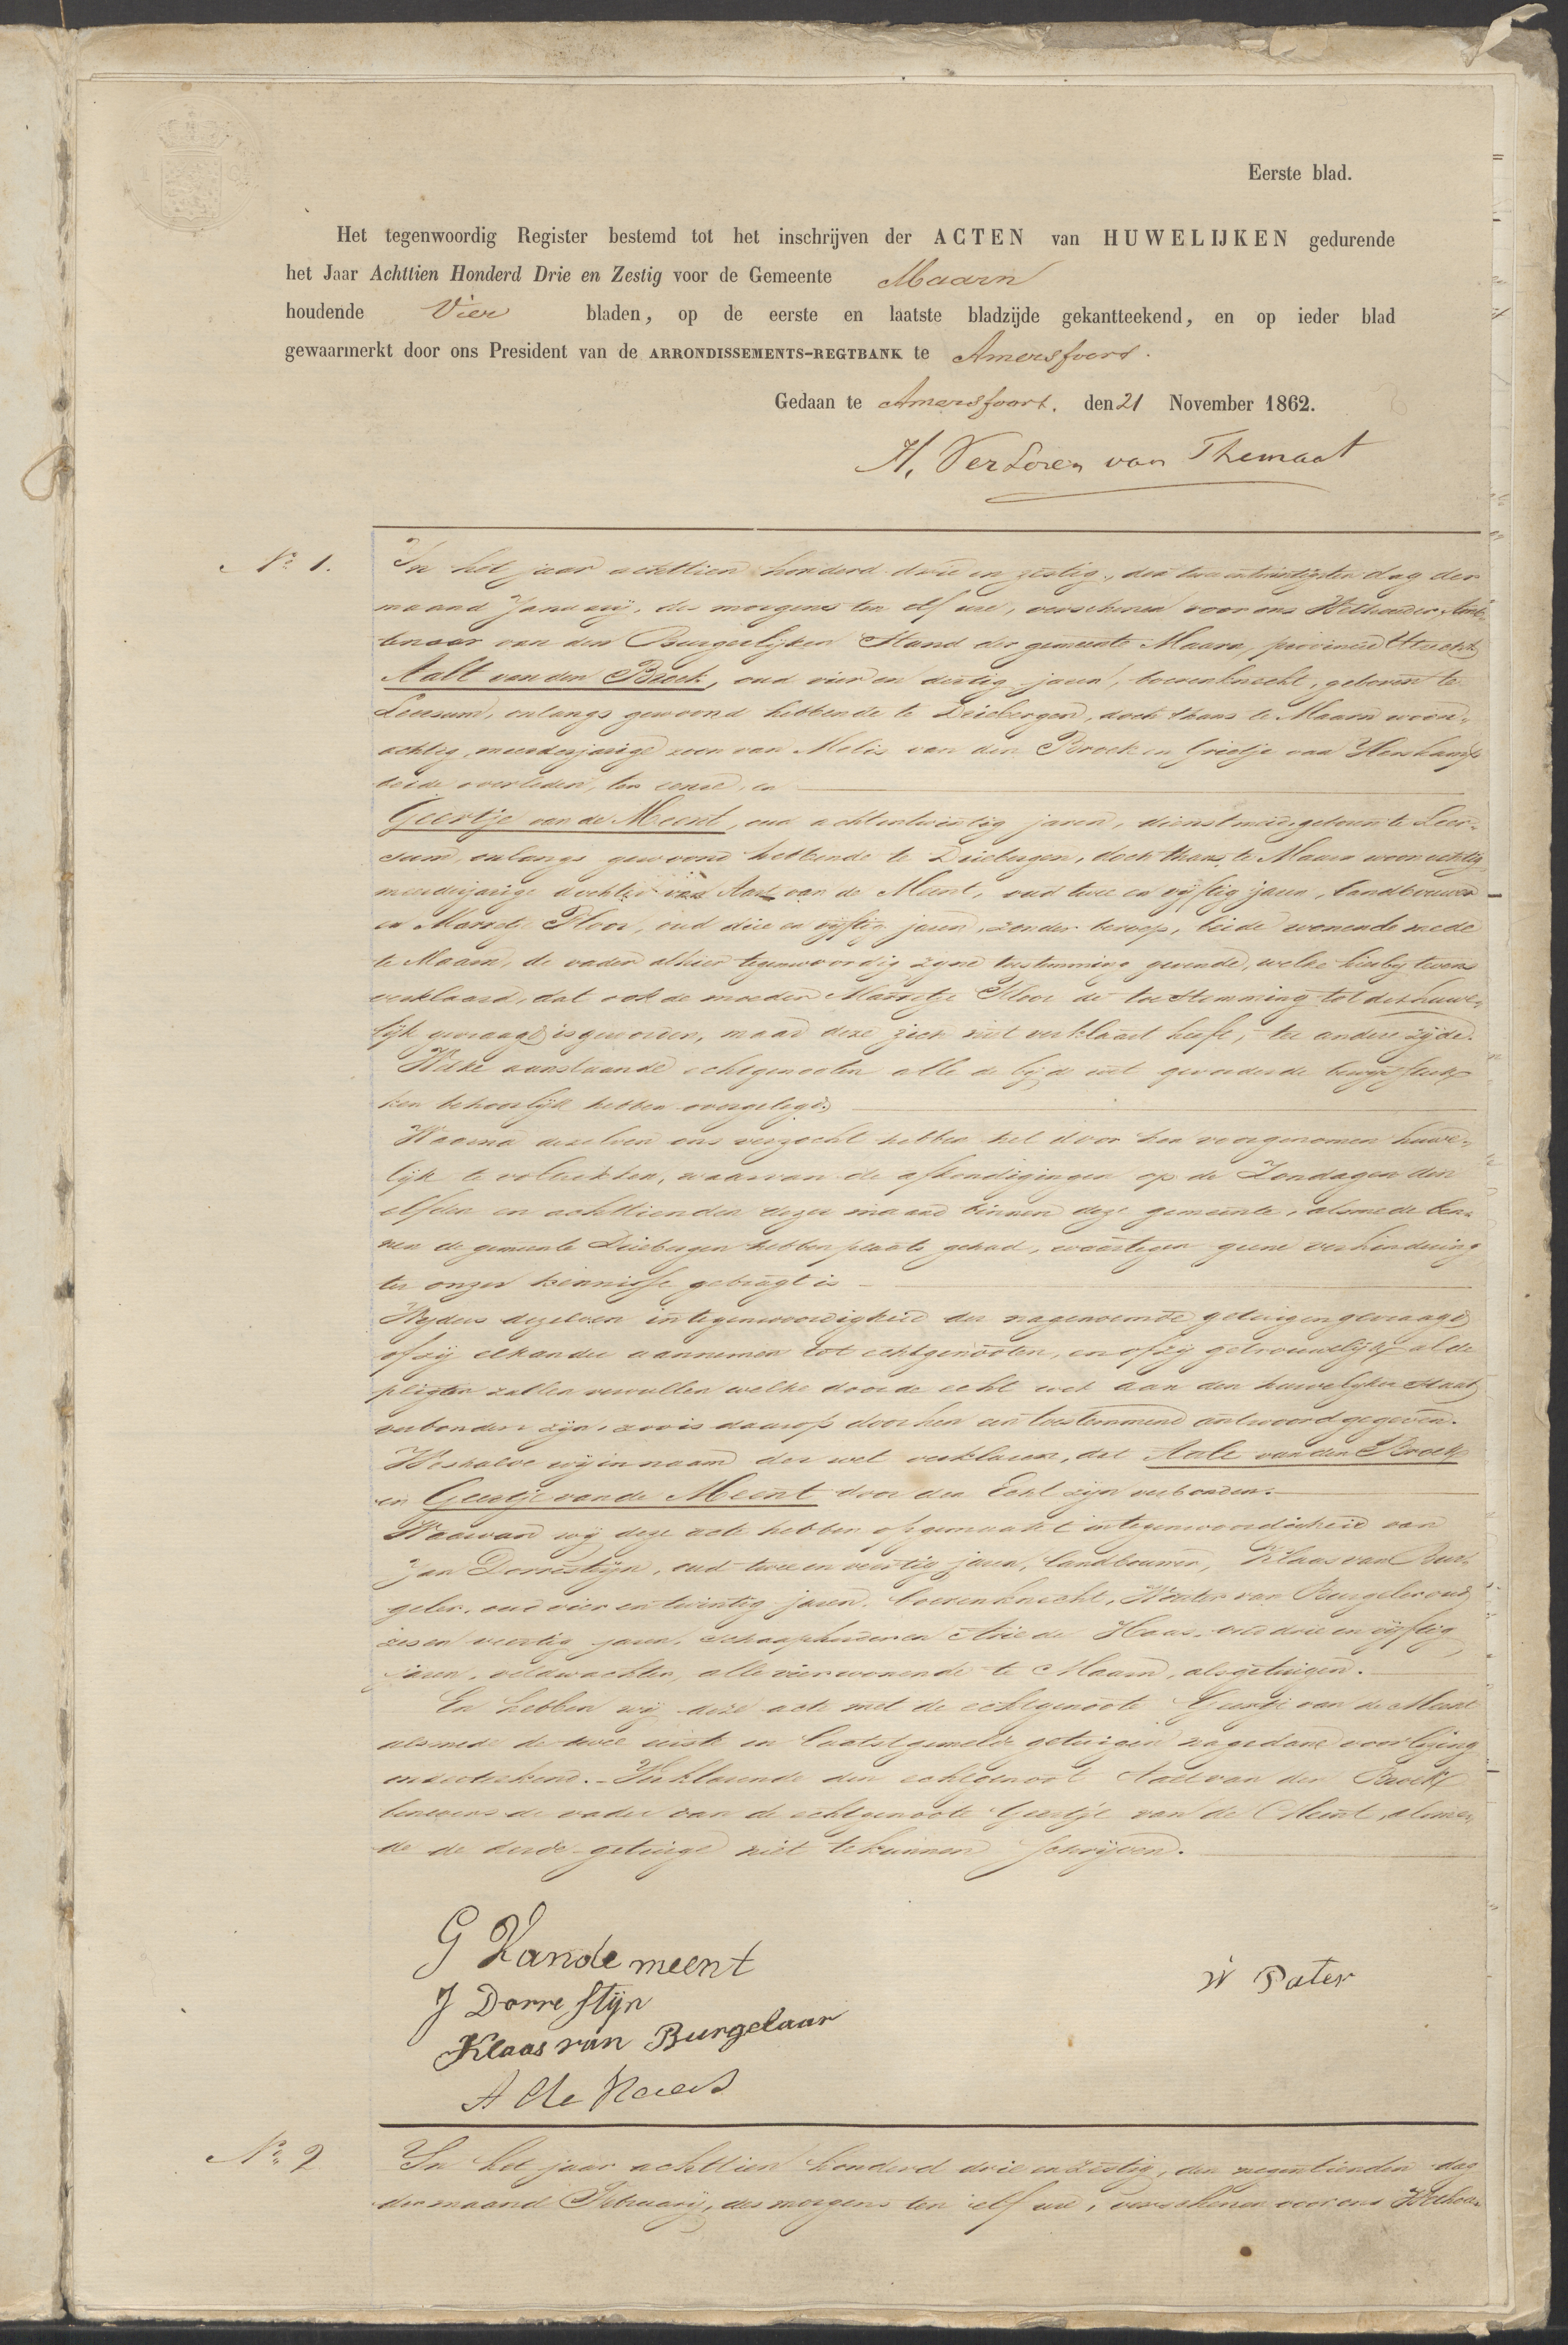 Eerste blad.
Het tegenwoordig Register bestemd tot het inschrijven der ACTEN van HUWELIJKEN gedurende
het Jaar Achttien Honderd Drie en Zestig voor de Gemeente Maarn
houdende Vier bladen, op de eerste en laatste bladzijde gekantteekend, en op ieder blad
gewaarmerkt door ons President van de ARRONDISSEMENTS-REGTBANK te Amersfoort.
Gedaan te Amersfoort, den 21 November 1862.
H. VerLoren van Themaat
No 1. In het jaar achttien honderd drie en zestig, den dag der
maand Januarij, des morgens ten elf ure, verschenen voor ons Wethouder, Amb-
tenaar van den Burgerlijken Stand der gemeente Maarn, provincie Utrecht
Aalt van den Broek, oud vier en dertig jaren, boerenknecht, geboren te
Leersum, onlangs gewoond hebbende te Driebergen, doch thans te Maarn woon-
achtig, meerderjarige zoon van Melis van den Broek en Grietje van
beide overleden, ter eenre, en
Geertje van de Meent, oud achtentwintig jaren, dienstmeid, geboren te Leer-
sum, onlangs gewoond hebbende te Driebergen, doch thans te Maarn woonachtig
meerderjarige dochter van Aart van de Meent, oud twee en vijftig jaren, landbouwer
en Marretje Floor, oud drie en vijftig jaren, zonder beroep, beide wonende mede
te Maarn, de vader alhier tegenwoordig zijne toestemming gevende, welke hierbij tevens
verklaard, dat ook de moeder Marretje Floor de toestemming tot dit huwe-
lijk gevraagd is geworden, maar deze zich niet verklaard heeft, ter andere zijde.
Welke aanstaande echtgenooten alle de bij de wet gevorderde bewijsstuk-
ken behoorlijk hebben overgelegd
Waarna dezelven ons verzocht hebben het door hen voorgenomen huwe-
lijk te voltrekken, waarvan de afkondigingen op de Zondagen den
elfden en achttienden dezer maand binnen deze gemeente, alsmede bin-
nen de gemeente Driebergen hebben plaats gehad, waartegen geene verhindering
ter onzer kennisse gebragt is
dezelven in tegenwoordigheid der nagenoemde getuigen gevraagd
of zij elkander aannemen tot echtgenooten, en of zij getrouwelijk al de
pligten zullen vervullen welke door de wet aan den huwelijken staat
verbonden zijn, zoo is daarop door hen een toestemmend antwoord gegeven.
Weshalve wij in naam der wet verklaren, dat Aalt van den Broek
en Geertje van de Meent door den Echt zijn verbonden.
Waarvan wij deze acte hebben opgemaakt in tegenwoordigheid van
Jan Dorrestijn, oud twee en veertig jaren, landbouwer, Klaas van Bur-
geler, oud vier en twintig jaren, boerenknecht, Wouter van Burgeler oud
zes en veertig jaren, schaapherder en Arie de Haas, oud drie en vijftig
jaren, veldwachter, alle vier wonende te Maarn, als getuigen.
En hebben wij deze acte met de echtgenoote Geertje van de Meent
alsmede de twee eerste en laatstgemelde getuigen na gedane voorlezing
onderteekend. Verklarende den echtgenoot Aalt van den Broek
benevens de vader van de echtgenoote Geertje van de Meent, alsme-
de de derde getuige niet te kunnen schrijven.
G Vande meent
W Pater
J Dorrestijn
Klaas van Burgelaar
A de Haas
No 2 In het jaar achttien honderd drie en zestig, den negentienden dag
der maand Februarij, des morgens ten elf ure, verschenen voor ons Wethou-